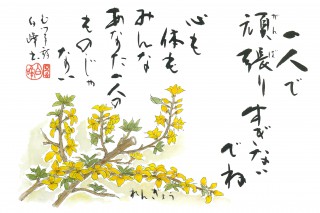 一人で
頑張りすぎない
でね
心も
体も
みんな
あなた一人の
ものじゃ
ない
れんぎょう